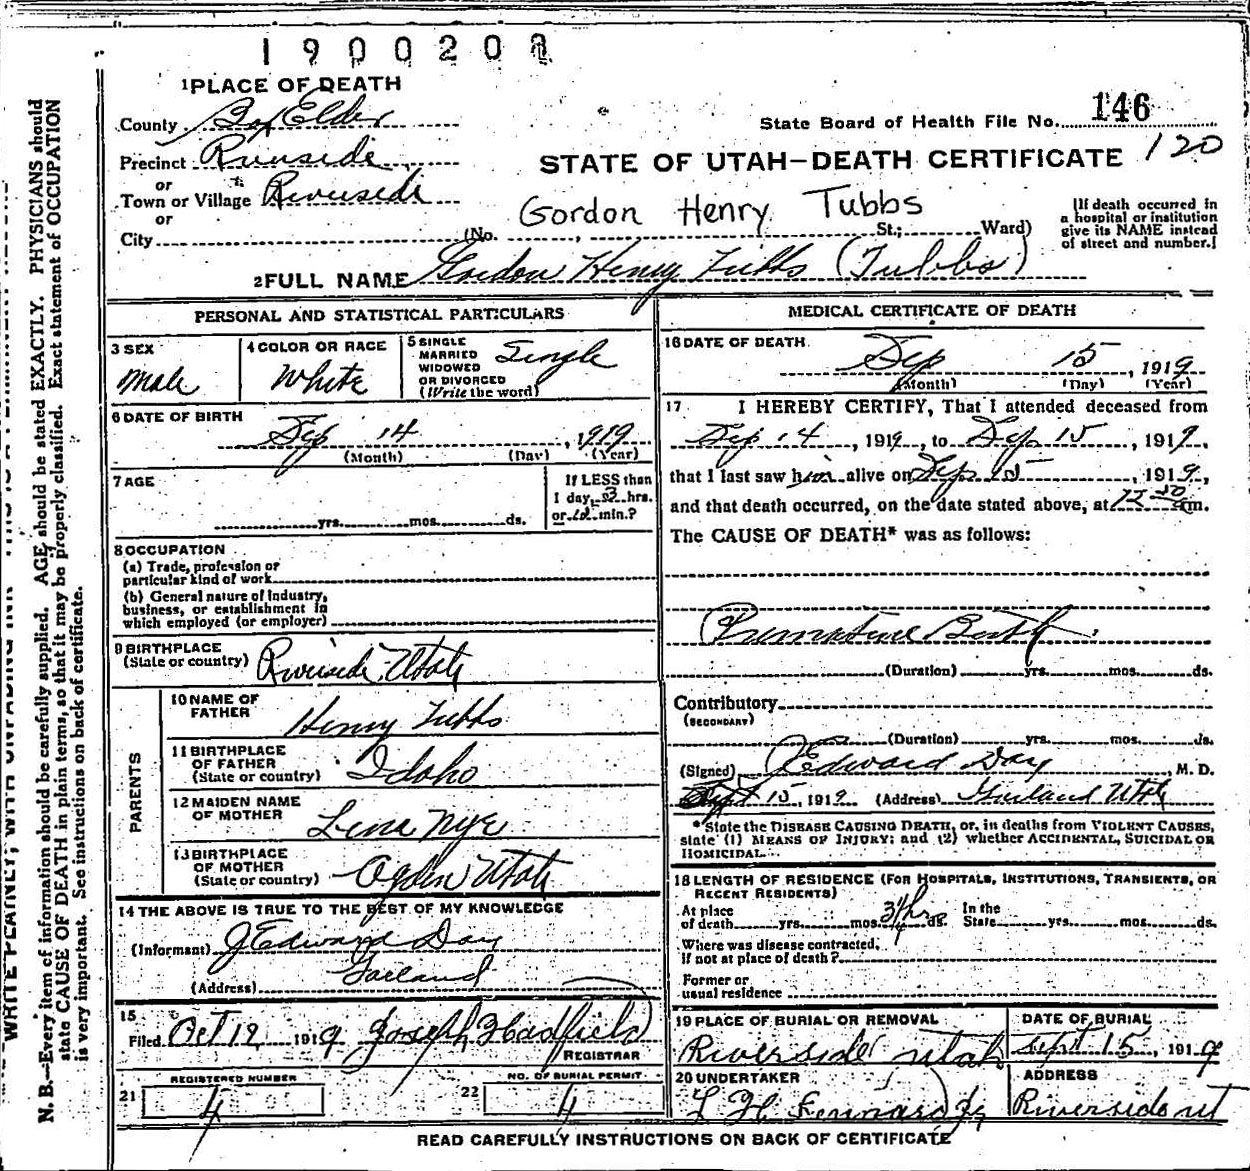 1900200
1 PLACE OF DEATH
County Box Elder
State Board of Health File No. 146
Precinct Riverside
STATE OF UTAH—DEATH CERTIFICATE 120
or
Town or Village Riverside
Gordon Henry Tubbs
or
City (No. St.; Ward)
(If death occurred in a hospital or institution give its NAME instead of street and number.)
2 FULL NAME Gordon Henry Tubbs (Tubbs)
PERSONAL AND STATISTICAL PARTICULARS
3 SEX
Male
4 COLOR OR RACE
White
5 SINGLE
MARRIED
WIDOWED
OR DIVORCED
(Write the word)
Single
6 DATE OF BIRTH
Sep 14, 1919
(Month) (Day) (Year)
7 AGE
yrs. mos. ds.
If LESS than
1 day, 3 hrs.
or min.?
8 OCCUPATION
(a) Trade, profession or
particular kind of work
(b) General nature of industry,
business, or establishment in
which employed (or employer)
9 BIRTHPLACE
(State or country) Riverside Utah
PARENTS
10 NAME OF
FATHER Henry Tubbs
11 BIRTHPLACE
OF FATHER
(State or country) Idaho
12 MAIDEN NAME
OF MOTHER Lina Nye
13 BIRTHPLACE
OF MOTHER
(State or country) Ogden Utah
14 THE ABOVE IS TRUE TO THE BEST OF MY KNOWLEDGE
(Informant) J Edward Day
(Address) Garland
15
Filed Oct 12 1919 Joseph Hadfield
REGISTRAR
21 REGISTERED NUMBER
4
22 NO. OF BURIAL PERMIT
4
MEDICAL CERTIFICATE OF DEATH
16 DATE OF DEATH
Sep 15, 1919
(Month) (Day) (Year)
17 I HEREBY CERTIFY, That I attended deceased from
Sep 14, 1919, to Sep 15, 1919,
that I last saw him alive on Sep 15, 1919,
and that death occurred, on the date stated above, at m.
The CAUSE OF DEATH* was as follows:
Premature Birth
(Duration) yrs. mos. ds.
Contributory
(SECONDARY)
(Duration) yrs. mos. ds.
(Signed) J Edward Day M. D.
Sept 15, 1919 (Address) Garland Utah
*State the DISEASE CAUSING DEATH, or, in deaths from VIOLENT CAUSES,
state (1) MEANS OF INJURY; and (2) whether ACCIDENTAL, SUICIDAL OR
HOMICIDAL.
18 LENGTH OF RESIDENCE (FOR HOSPITALS, INSTITUTIONS, TRANSIENTS, OR
RECENT RESIDENTS)
At place
of death yrs. mos. hrs ds. In the
State yrs. mos. ds.
Where was disease contracted,
if not at place of death?
Former or
usual residence
19 PLACE OF BURIAL OR REMOVAL
Riverside Utah
DATE OF BURIAL
Sept 15, 1919
20 UNDERTAKER
ADDRESS
Riverside ut
READ CAREFULLY INSTRUCTIONS ON BACK OF CERTIFICATE
N. B.—Every item of information should be carefully supplied. AGE should be stated EXACTLY. PHYSICIANS should
state CAUSE OF DEATH in plain terms, so that it may be properly classified. Exact statement of OCCUPATION
is very important. See instructions on back of certificate.